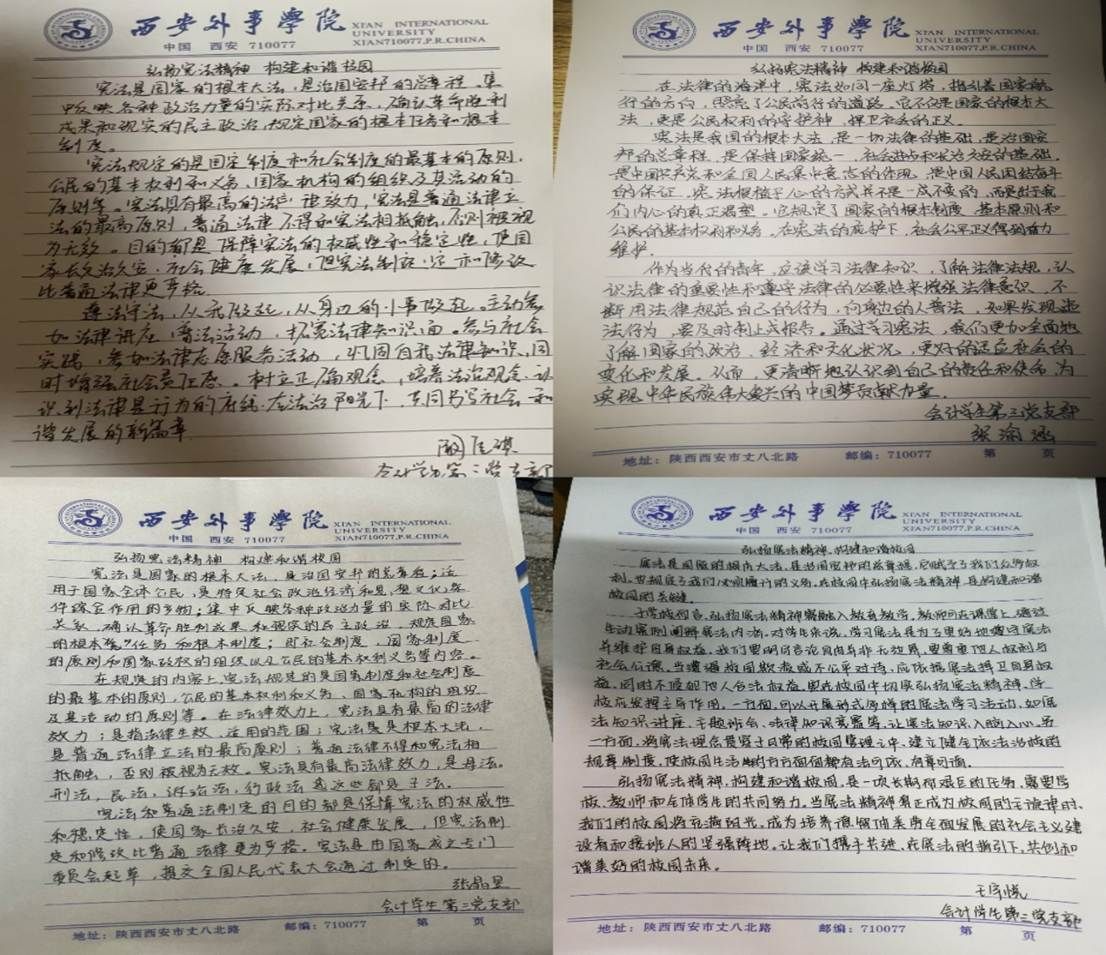 西安外事學院
XIAN INTERNATIONAL
UNIVERSITY
中国 西安 710077
XIAN710077,P.R.CHINA
弘扬宪法精神 构建和谐校园
宪法是国家的根本大法,是治国安邦的总章程。集
中反映各种政治力量的实际对比关系,确认革命胜利
成果和现实的民主政治,规定国家的根本任务和根本
制度。
宪法规定的是国家制度和社会制度的最基本的原则,
公民的基本权利和义务,国家机构的组织及其活动的
原则等。宪法具有最高的法律效力,宪法是普通法律立
法的最高原则,普通法律不得和宪法相抵触,否则被视
为无效。目的都是保障宪法的权威性和稳定性,使国
家长久治久安,社会健康发展,但宪法制定和修改
比普通法律更严格。
遵法守法,从我做起,从身边的小事做起。主动参
加法律讲座,普法活动,拓宽法律知识面。参与社会
实践,参加法律志愿服务活动,巩固自我法律知识,同
时增强社会责任感。树立正确观念,培养法治观念,认
识到法律是行为的底线。在法治阳光下,共同书写社会和
谐发展的新篇章
会计学生第三党支部
西安外事學院
XIAN INTERNATIONAL
UNIVERSITY
中国 西安 710077
XIAN710077,P.R.CHINA
弘扬宪法精神 构建和谐校园
在法律的海洋中,宪法如同一座灯塔,指引着国家航
行的方向,照亮了公民前行的道路。它不仅是国家的根本大
法,更是公民权利的守护神,捍卫社会的正义。
宪法是我国的根本大法,是一切法律的基础,是治国安
邦的总章程,是保持国家统一、社会进步和长治久安的基础,
是中国共产党和全国人民集中意志的体现,是中国人民团结奋斗
的保证,宪法根植于心的方式并不是一成不变的,而是出于我
们内心的真正渴望。它规定了国家的根本制度、基本原则和
公民的基本权利和义务,在宪法的庇护下,社会公平正义得到有力
维护。
作为当代的青年,应该学习法律知识,了解法律法规,认
识法律的重要性和遵守法律的必要性来增强法律意识,不
断用法律规范自己的行为,向身边的人普法,如果发现违
法行为,要及时制止或报告。通过学习宪法,我们更加全面地
了解国家的政治、经济和文化状况,更好的适应社会的
变化和发展。从而,更清晰地认识到自己的责任和使命,为
实现中华民族伟大复兴的中国梦贡献力量。
会计学生第三党支部
张渝涵
地址:陕西西安市丈八北路 邮编:710077 第 页
西安外事學院
XIAN INTERNATIONAL
UNIVERSITY
中国 西安 710077
XIAN710077,P.R.CHINA
弘扬宪法精神 构建和谐校园
宪法是国家的根本大法,是治国安邦的总章程;适
用于国家全体公民,是特定社会政治经济和思想文化条
件综合作用的产物;集中反映各种政治力量的实际对比
关系,确认革命胜利成果和现实的民主政治,规定国家
的根本任务和根本制度;即社会制度,国家制度
的原则和国家政权的组织以及公民的基本权利义务等内容。
在规定的内容上,宪法规定的是国家制度和社会制度
的最基本的原则,公民的基本权利和义务,国家机构的组织
及其活动的原则等。在法律效力上,宪法具有最高的法律
效力;是指法律生效、适用的范围;宪法是根本大法,
是普通法律立法的最高原则;普通法律不得和宪法相
抵触,否则被视为无效。宪法具有最高法律效力,是母法。
刑法,民法,诉讼法,行政法等这些都是子法。
宪法和普通法制定的目的都是保障宪法的权威性
和稳定性,使国家长治久安,社会健康发展,但宪法制
定和修改比普通法律更为严格。宪法是由国家成立专门
委员会起草,提交全国人民代表大会通过制定的。
会计学生第三党支部
地址:陕西西安市丈八北路 邮编:710077 第 页
西安外事學院
XIAN INTERNATIONAL
UNIVERSITY
中国 西安 710077
XIAN710077,P.R.CHINA
弘扬宪法精神,构建和谐校园
宪法是国家的根本大法,是治国安邦的总章程,它赋予了我们公民权
利,也规定了我们必须履行的义务,在校园中弘扬宪法精神,是构建和谐
校园的关键。
于学校而言,弘扬宪法精神需融入教育教学。教师可在课堂上,通过
生动案例阐释宪法内涵。对学生来说,学习宪法是为了更好地遵守宪法
并维护自身权益。我们要明白言论自由并非无边界,要尊重他人权利与
社会公德。当遭遇校园欺凌或不公平对待,应依据宪法捍卫自身权
益,同时不侵犯他人合法权益。要在校园中切实弘扬宪法精神,学
校应发挥主导作用。一方面,可以开展形式多样的宪法学习活动,如宪
法知识讲座、主题班会、法律知识竞赛等,让宪法知识入脑入心。另
一方面,将宪法理念贯穿于日常的校园管理之中,建立健全依法治校的
规章制度,使校园生活的方方面面都有法可依、有章可循。
弘扬宪法精神,构建和谐校园,是一项长期而艰巨的任务,需要学
校、教师和全体学生的共同努力。当宪法精神真正成为校园的主旋律时,
我们的校园将充满阳光,成为培养德智体美劳全面发展的社会主义建
设者和接班人的坚强阵地。让我们携手共进,在宪法的指引下,共创和
谐美好的校园未来。
会计学生第三党支部
地址:陕西西安市丈八北路 邮编:710077 第 页